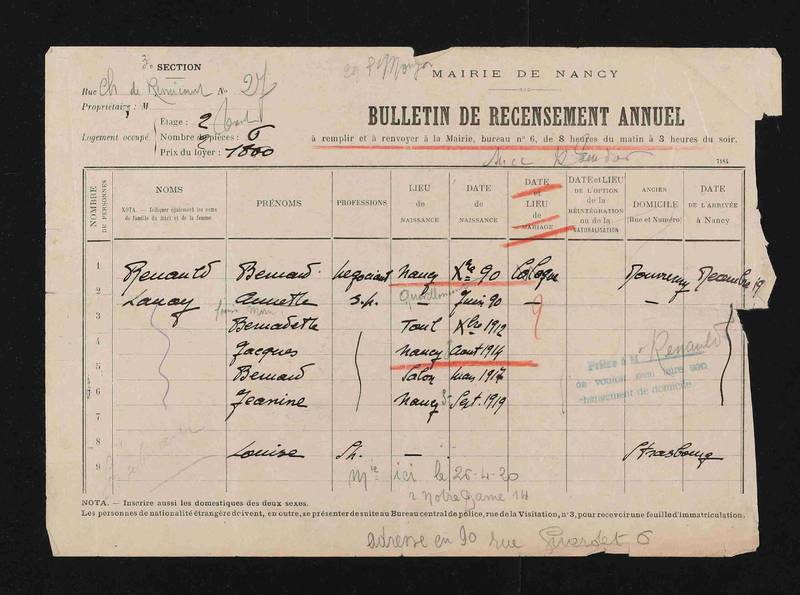 3e SECTION
MAIRIE DE NANCY
Rue Ch de Remicourt No 27
Propriétaire : M
BULLETIN DE RECENSEMENT ANNUEL
Etage : 2
Logement occupé Nombre de pièces : 6
Prix du loyer : 1800
à remplir et à renvoyer à la Mairie, bureau n° 6, de 8 heures du matin à 3 heures du soir.
NOMBRE DE PERSONNES
NOMS
NOTA. — Indiquer également les noms de famille du mari et de la femme.
PRÉNOMS
PROFESSIONS
LIEU de NAISSANCE
DATE de NAISSANCE
DATE et LIEU de MARIAGE
DATE et LIEU DE L'OPTION de la RÉINTÉGRATION ou de la NATURALISATION
ANCIEN DOMICILE (Rue et Numéro)
DATE DE L'ARRIVÉE à Nancy
1 Renauld Bernard négociant Nancy Xbre 90 Cologne Decembre 19
2 Lanoy Annette s.p. — Juin 90 — —
3 Bernadette Toul Xbre 1912
4 Jacques Nancy Aout 1914
5 Bernard Salon Mars 1917
6 Jeanine Nancy Sept. 1919
7
8 Louise Sh. — Strasbourg
9
Prière à M Renauld
de vouloir bien faire son
changement de domicile
ici le 26-4-20
r Notre Dame 14
NOTA. — Inscrire aussi les domestiques des deux sexes.
Les personnes de nationalité étrangère doivent, en outre, se présenter de suite au Bureau central de police, rue de la Visitation, n° 3, pour recevoir une feuille d'immatriculation.
adresse en 20 rue Girardet 6